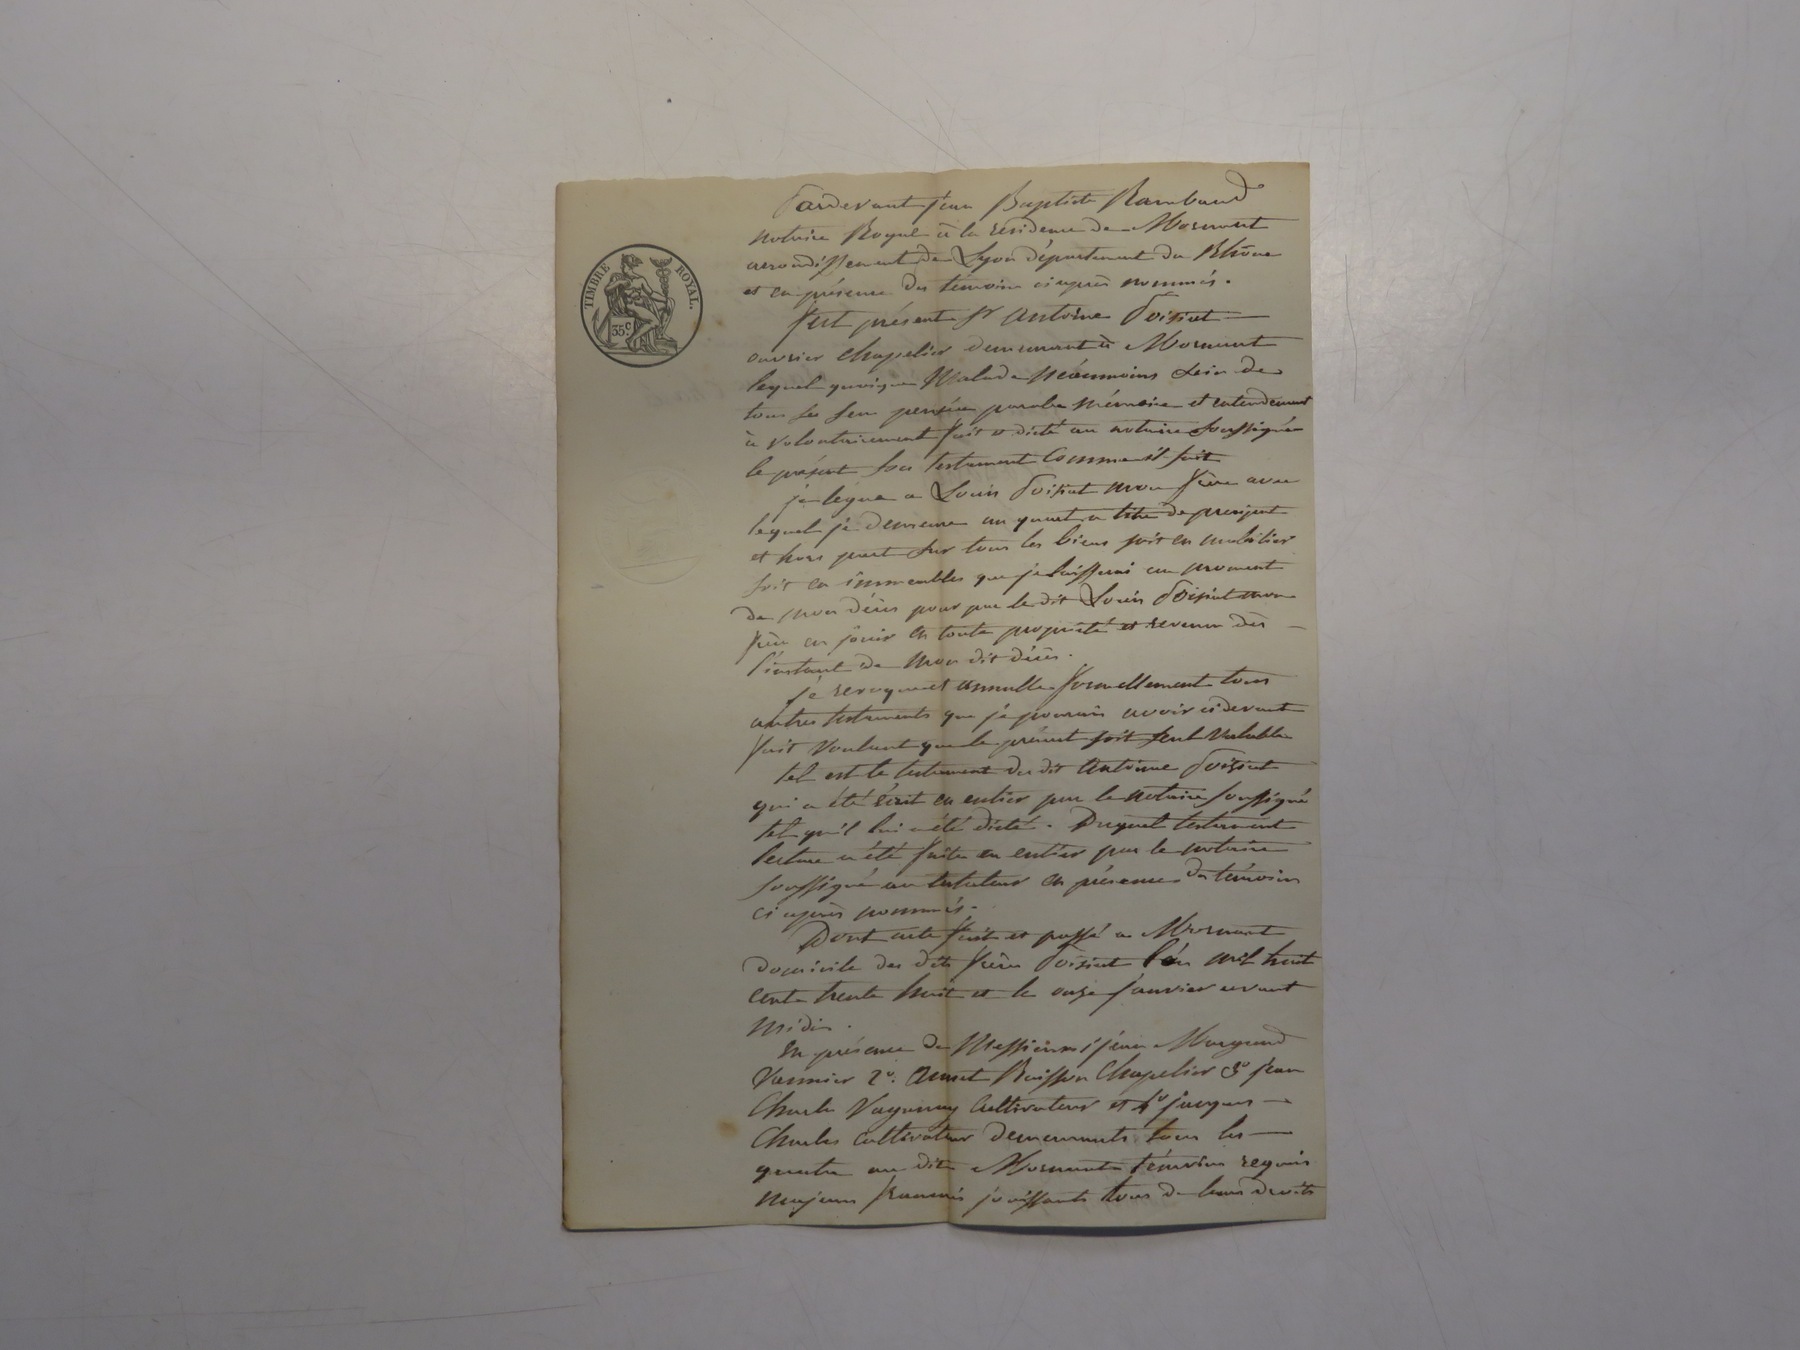 TIMBRE ROYAL.
35c.
Pardevant jean Baptiste Rambaud
notaire Royal à la résidence de Mornant
arrondissement de Lyon département du Rhône
et en présence des témoins ci après nommés.
fut présent Sr antoine Poizat
ouvrier chapelier demeurant à Mornant
lequel quoique Malade néanmoins Sein de
tous ses sens pensées parole mémoire et entendement
à volontairement fait et dicté au notaire soussigné
le présent Son testament Comme il suit
je legue a Louis Poizat mon frère avec
lequel je demeure un quart a titre de preciput
et hors part Sur tous les biens soit en mobilier
soit en immeubles que je laisserai au moment
de mon décès pour par le dit Louis Poizat mon
frère en jouir en toute propriété et revenu dès
l'instant de mon dit décès.
je revoque et annulle formellement tous
autres testaments que je pourrais avoir ci devant
fait voulant que le présent soit seul valable
tel est le testament du dit antoine Poizat
qui a été écrit en entier par le notaire soussigné
tel qu'il lui a été dicté. Duquel testament
lecture a été faite en entier par le notaire
soussigné au testateur en présence des témoins
ci après nommés.
Dont acte fait et passé a Mornant
domicile des dits frères Poizat l'an mil huit
cents trente huit et le onze janvier avant
midi.
En présence de Messieurs 1° jean
Vannier 2°. Buisson Chapelier 3° jean
Charles cultivateur et 4° jacques
Charles cultivateur demeurants tous les
quatre au dit Mornant témoins requis
majeurs francais jouissants tous de leurs droits